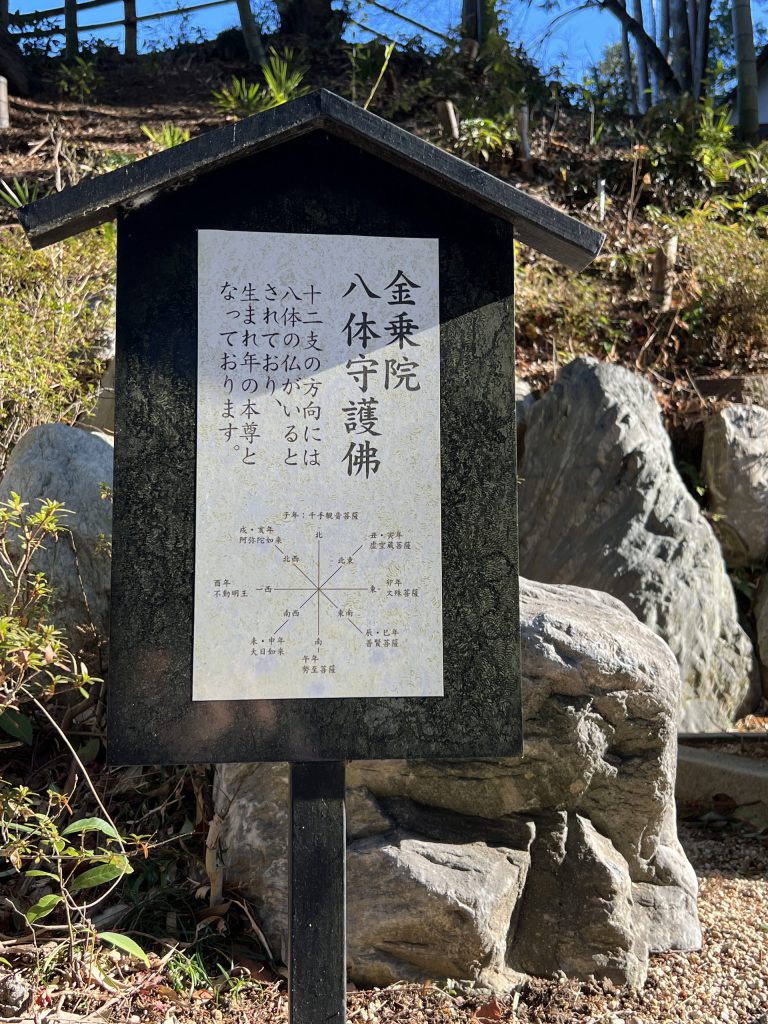 金乗院
八体守護佛
十二支の方向には
八体の仏がいると
されており、
生まれ年の本尊と
なっております。
子年：千手観音菩薩
北
戌・亥年
阿弥陀如来
丑・寅年
虚空蔵菩薩
北西
北東
酉年
不動明王
西
東
卯年
文殊菩薩
南西
東南
未・申年
大日如来
辰・巳年
普賢菩薩
南
午年
勢至菩薩